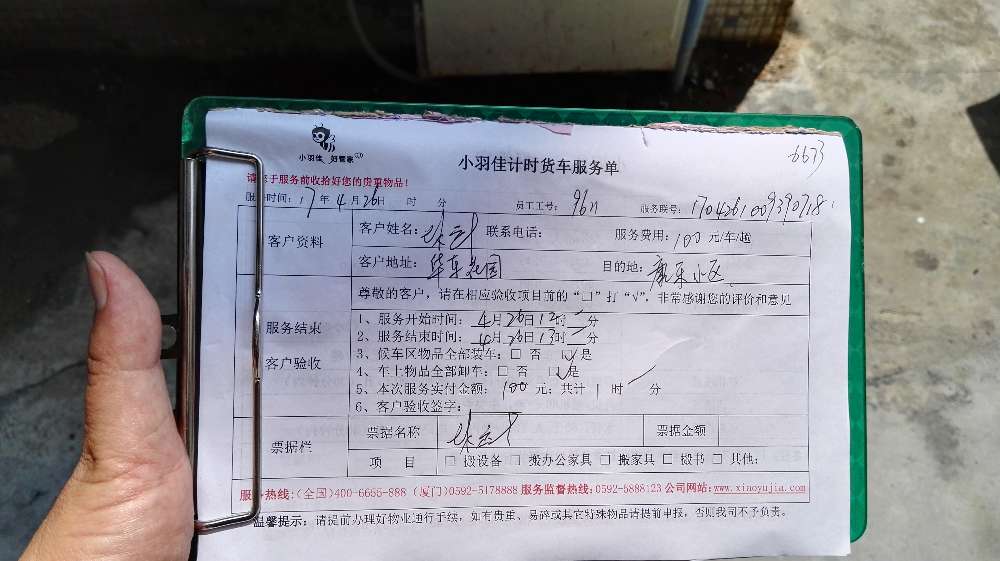 小羽佳 好管家
小羽佳计时货车服务单
6673
请您于服务前收拾好您的贵重物品!
服务时间: 17 年 4 月 26 日 时 分 员工工号: 服务联号:
客户资料
客户姓名: 联系电话: 服务费用: 100 元/车/趟
客户地址: 华车花园 目的地: 康乐小区
尊敬的客户, 请在相应验收项目前的“口”打“√”, 非常感谢您的评价和意见
服务结束
客户验收
1、服务开始时间: 4月26日12时 分
2、服务结束时间: 4月26日13时 分
3、候车区物品全部装车: □ 否 ☑ 是
4、车上物品全部卸车: □ 否 ☑ 是
5、本次服务实付金额: 100 元; 共计 1 时 分
6、客户验收签字:
票据栏
票据名称 票据金额
项 目 □ 搬设备 □ 搬办公家具 □ 搬家具 □ 搬书 □ 其他:
服务热线:(全国)400-6655-888 (厦门)0592-5178888 服务监督热线:0592-5888123 公司网站:www.xiaoyujia.com
温馨提示: 请提前办理好物业通行手续, 如有贵重、易碎或其它特殊物品请提前申报, 否则我司不予负责。